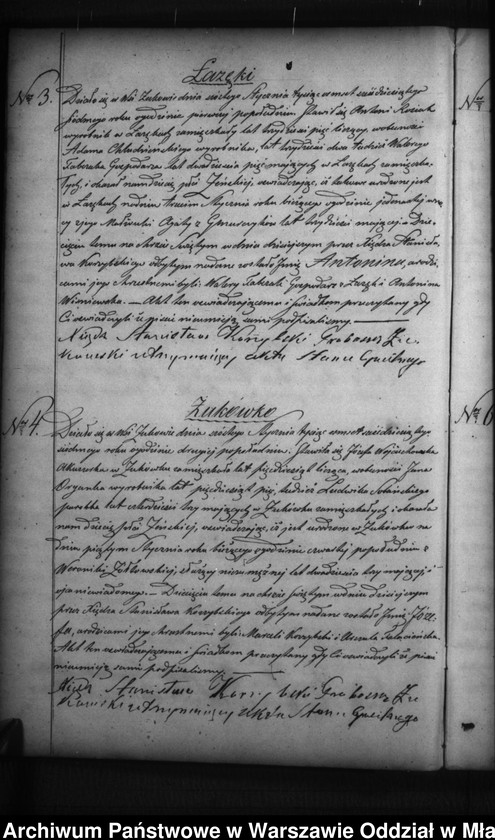 Łazęki
Nr 3.
Działo się w Wsi Żukowie dnia szóstego Stycznia tysiąc ośmset sześćdziesiątego
siódmego roku ogodzinie pierwszej popołudniu. Stawił się Antoni
wyrobnik w Łazękach zamieszkały lat trzydzieści pięć liczący, w obecności
Adama wyrobnika, lat trzydzieści dwa, tudzież Walentego
Gospodarza lat dwadzieścia pięć mających w Łazękach zamieszka-
łych, i okazał nam dziecię płci Żeńskiej, oświadczając, iż takowe urodzone jest
w Łazękach nadniu Trzecim Stycznia roku bieżącego ogodzinie jedenastej
z jego Małżonki Agaty z lat trzydzieści mającej. Dzie-
cięciu temu na Chrzcie Świętym w dniu dzisiejszym przez Księdza Stanisła-
wa Korzybskiego odbytym nadane zostało Imię Antonina, a rodzi-
cami jego Chrzestnemi byli: Gospodarz z Łazęk i Antonina
Wiśniewska. — Akt ten oświadczającemu i świadkom przeczytany, gdy
Ci oświadczyli iż pisać nieumieją sami podpisaliśmy.
Ksiądz Stanisław Korzybski Proboszcz
utrzymujący Akta Stanu Cywilnego
Żukówko
Nr 4.
Działo się w Wsi Żukowie dnia szóstego Stycznia tysiąc ośmset sześćdziesiątego
siódmego roku ogodzinie drugiej popołudniu. Stawiła się Józefa Wojciechowska
Akuszerka w Żukówku zamieszkała lat pięćdziesiąt licząca, w obecności Jana
wyrobnika lat pięćdziesiąt pięć, tudzież Ludwika
parobka lat czterdzieści trzy mających, w Żukówku zamieszkałych i okazała
nam dziecię płci Żeńskiej, oświadczając, iż jest urodzone w Żukówku na
dniu piątym Stycznia roku bieżącego ogodzinie czwartej popołudniu z
Weroniki służącej niezamężnej lat dwadzieścia trzy mającej i oj-
ca niewiadomego. — Dziecięciu temu na chrzcie świętym w dniu dzisiejszym
przez Księdza Stanisława Korzybskiego odbytym nadane zostało Imię Józe-
fa, a rodzicami jego Chrzestnemi byli: Marceli Korzybski i
Akt ten oświadczającemu i świadkom przeczytany gdy Ci oświadczyli iż pisać
nieumieją sami podpisaliśmy.
Ksiądz Stanisław Korzybski Proboszcz
utrzymujący Akta Stanu Cywilnego
Archiwum Państwowe w Warszawie Oddział w Mła